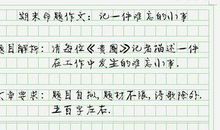 期末命题作文：记一件难忘的小事
题目解析：请每位《贵圈》记者描述一件
在工作中发生的难忘小事.
文章要求：题目自拟,题材不限,诗歌除外.
五百字左右.